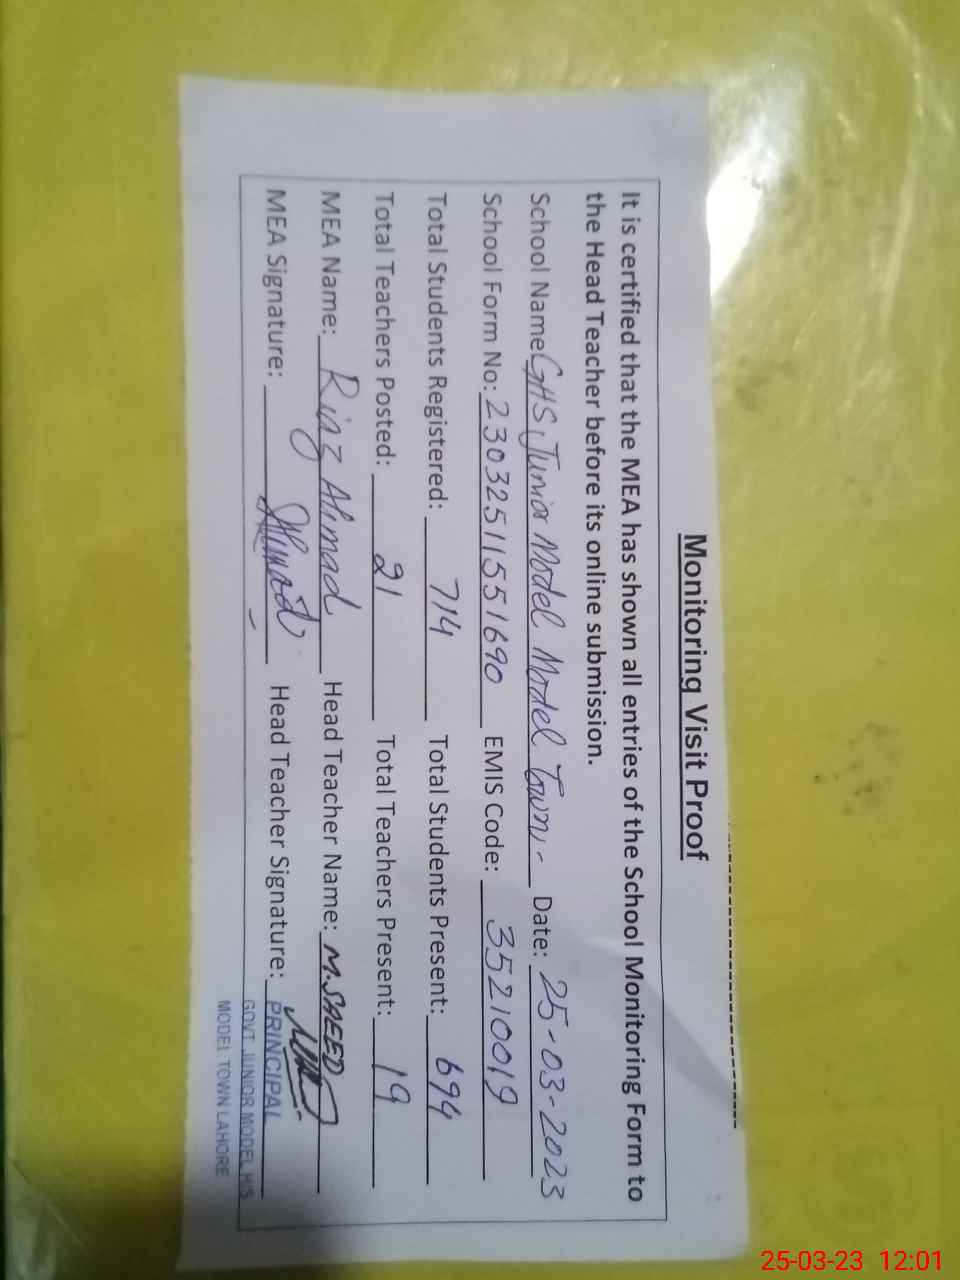 Monitoring Visit Proof
It is certified that the MEA has shown all entries of the School Monitoring Form to
the Head Teacher before its online submission.
School Name GHS Junior Model Model Town,- Date: 25-03-2023
School Form No: 2303251155 1690 EMIS Code: 35210019
Total Students Registered: 714 Total Students Present: 694
Total Teachers Posted: 21 Total Teachers Present: 19
MEA Name: Riaz Ahmad Head Teacher Name: M.SAEED
MEA Signature: Ahmad Head Teacher Signature: PRINCIPAL
GOVT. JUNIOR MODEL H/S
MODEL TOWN LAHORE
25-03-23 12:01